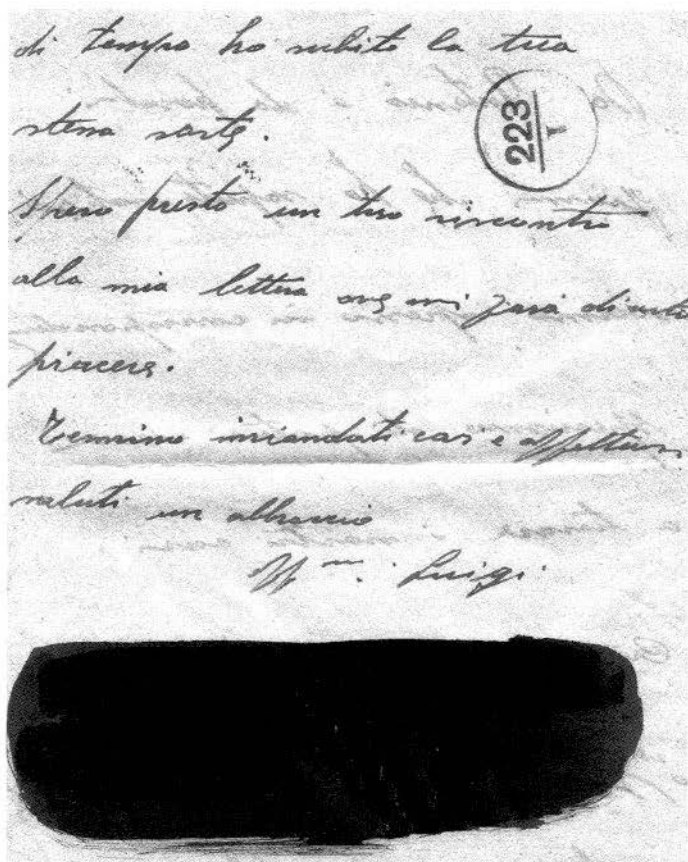 di tempo ho subito la tua
stessa sorte.
Spero presto un tuo riscontro
alla mia lettera ove mi farà
piacere.
Termino inviandoti cari e affettuosi
saluti un abbraccio
Aff.mo Luigi
223